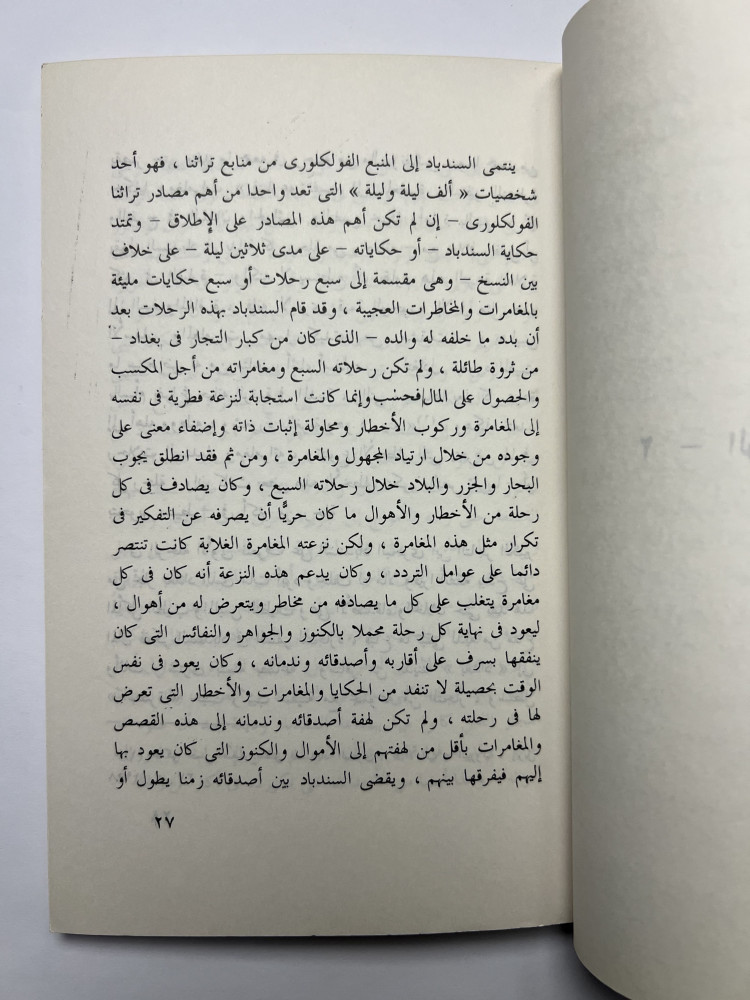 ينتمى السندباد إلى المنبع الفولكلورى من منابع تراثنا ، فهو أحد
شخصيات « ألف ليلة وليلة » التى تعد واحدا من أهم مصادر تراثنا
الفولكلورى – إن لم تكن أهم هذه المصادر على الإطلاق – وتمتد
حكاية السندباد – أو حكاياته – على مدى ثلاثين ليلة – على خلاف
بين النسخ – وهى مقسمة إلى سبع رحلات أو سبع حكايات مليئة
بالمغامرات والمخاطرات العجيبة ، وقد قام السندباد بهذه الرحلات بعد
أن بدد ما خلفه له والده – الذى كان من كبار التجار فى بغداد –
من ثروة طائلة ، ولم تكن رحلاته السبع ومغامراته من أجل المكسب
والحصول على المال فحسب وإنما كانت استجابة لنزعة فطرية فى نفسه
إلى المغامرة وركوب الأخطار ومحاولة إثبات ذاته وإضفاء معنى على
وجوده من خلال ارتياد المجهول والمغامرة ، ومن ثم فقد انطلق يجوب
البحار والجزر والبلاد خلال رحلاته السبع ، وكان يصادف فى كل
رحلة من الأخطار والأهوال ما كان حريًّا أن يصرفه عن التفكير فى
تكرار مثل هذه المغامرة ، ولكن نزعته المغامرة الغلابة كانت تنتصر
دائما على عوامل التردد ، وكان يدعم هذه النزعة أنه كان فى كل
مغامرة يتغلب على كل ما يصادفه من مخاطر ويتعرض له من أهوال ،
ليعود فى نهاية كل رحلة محملا بالكنوز والجواهر والنفائس التى كان
ينفقها بسرف على أقاربه وأصدقائه وندمانه ، وكان يعود فى نفس
الوقت بحصيلة لا تنفد من الحكايا والمغامرات والأخطار التى تعرض
لها فى رحلته ، ولم تكن لهفة أصدقائه وندمانه إلى هذه القصص
والمغامرات بأقل من لهفتهم إلى الأموال والكنوز التى كان يعود بها
إليهم فيفرقها بينهم ، ويقضى السندباد بين أصدقائه زمنا يطول أو
٢٧